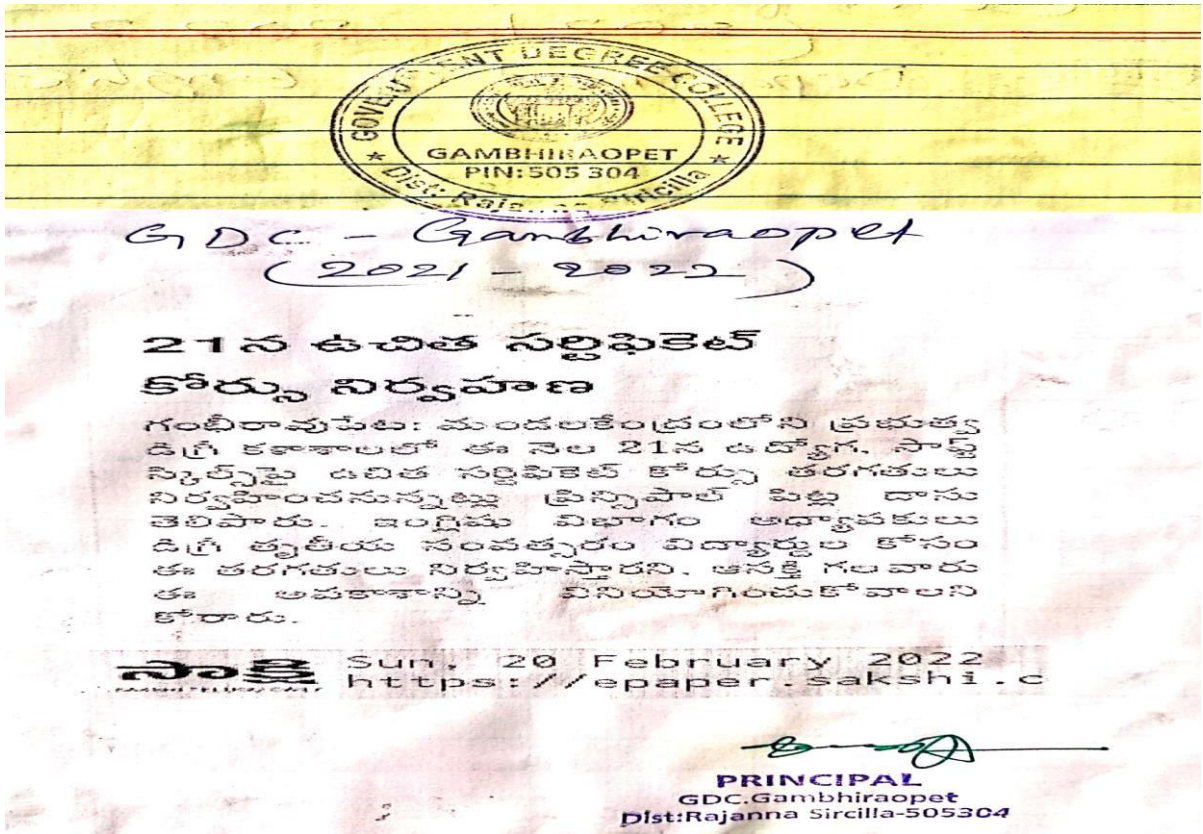 GOVERNMENT DEGREE COLLEGE
GAMBHIRAOPET
PIN:505 304
Dist: Rajanna Siricilla
GDC - Gambhiraopet
(2021 - 2022)
21న ఉచిత సర్టిఫికెట్
కోర్సు నిర్వహణ
గంభీరావుపేట: మండలకేంద్రంలోని ప్రభుత్వ
డిగ్రీ కళాశాలలో ఈ నెల 21న ఉద్యోగ, సాఫ్ట్
స్కిల్స్‌పై ఉచిత సర్టిఫికెట్ కోర్సు తరగతులు
నిర్వహించనున్నట్టు ప్రిన్సిపాల్ పిట్ల దాసు
తెలిపారు. ఇంగ్లిషు విభాగం అధ్యాపకులు
డిగ్రీ తృతీయ సంవత్సరం విద్యార్థుల కోసం
ఈ తరగతులు నిర్వహిస్తారని, ఆసక్తి గలవారు
ఈ అవకాశాన్ని వినియోగించుకోవాలని
కోరారు.
సాక్షి Sun, 20 February 2022
https://epaper.sakshi.c
PRINCIPAL
GDC.Gambhiraopet
Dist:Rajanna Sircilla-505304